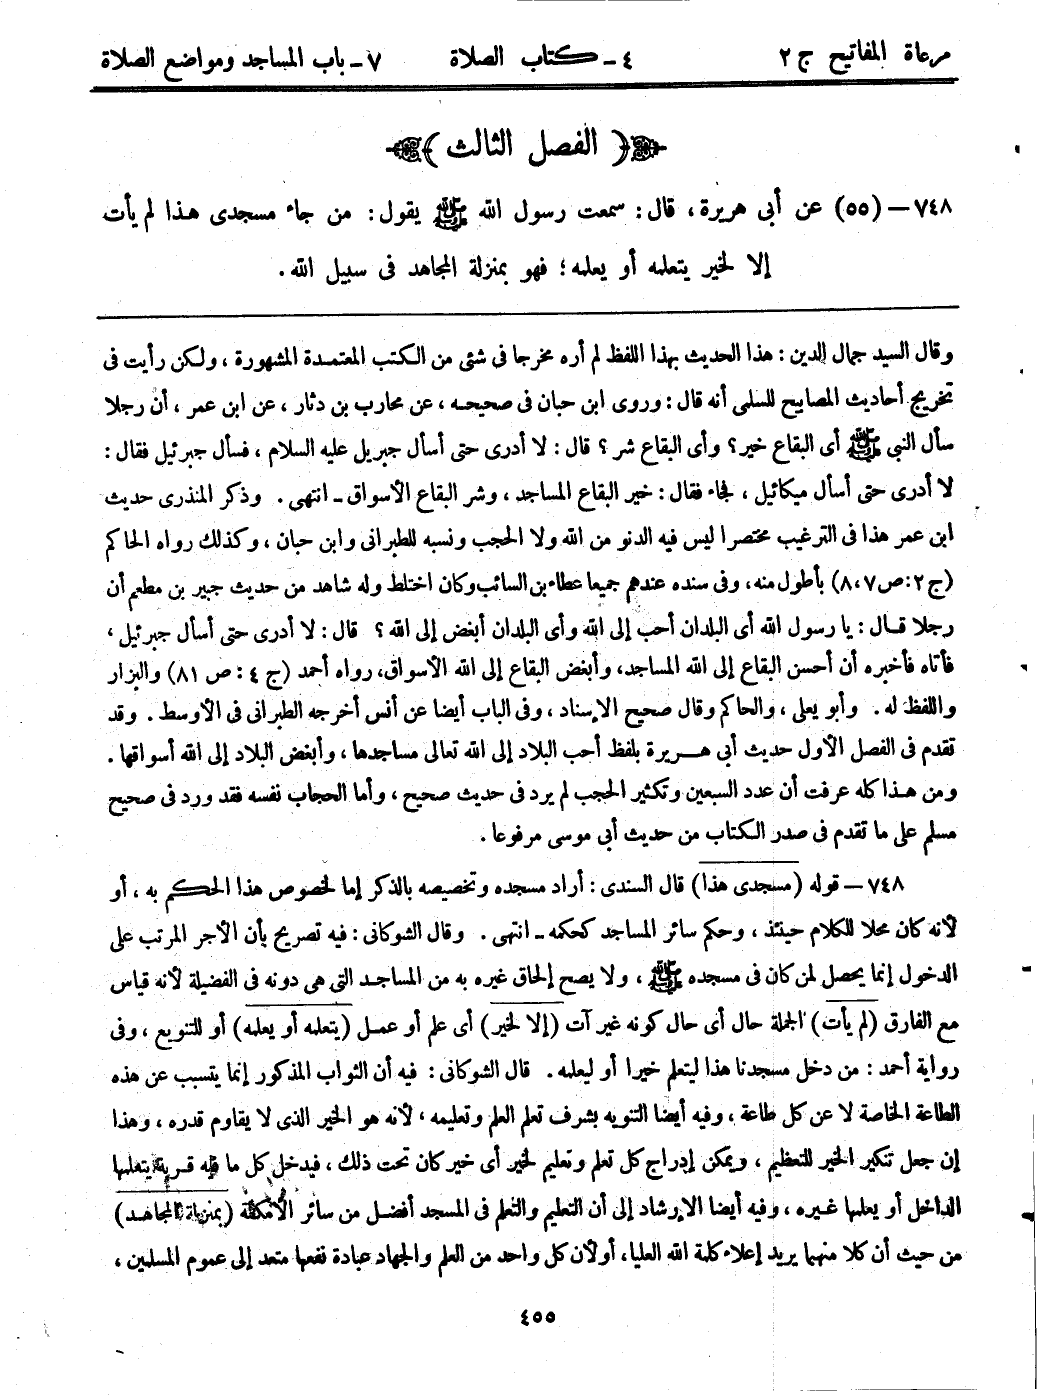 مرعاة المفاتيح ج ٢ ٤ - كتاب الصلاة ٧ - باب المساجد ومواضع الصلاة
﴿ الفصل الثالث ﴾
٧٤٨ – (٥٥) عن أبى هريرة، قال: سمعت رسول الله ﷺ يقول: من جاء مسجدى هذا لم يأت
إلا لخير يتعلمه أو يعلمه؛ فهو بمنزلة المجاهد فى سبيل الله.
وقال السيد جمال الدين: هذا الحديث بهذا اللفظ لم أره مخرجا فى شئى من الكتب المعتمدة المشهورة، ولكن رأيت فى
تخريج أحاديث المصابيح للسلمى أنه قال: وروى ابن حبان فى صحيحه، عن محارب بن دثار، عن ابن عمر، أن رجلا
سأل النبى ﷺ أى البقاع خير؟ وأى البقاع شر؟ قال: لا أدرى حتى أسأل جبريل عليه السلام، فسأل جبرئيل فقال:
لا أدرى حتى أسأل ميكائيل، فجاء فقال: خير البقاع المساجد، وشر البقاع الأسواق - انتهى. وذكر المنذرى حديث
ابن عمر هذا فى الترغيب مختصرا ليس فيه الدنو من الله ولا الحجب ونسبه للطبرانى وابن حبان، وكذلك رواه الحاكم
(ج ٢: ص ٧، ٨) بأطول منه، وفى سنده عندهم جميعا عطاء بن السائب وكان اختلط وله شاهد من حديث جبير بن مطعم أن
رجلا قال: يا رسول الله أى البلدان أحب إلى الله وأى البلدان أبغض إلى الله؟ قال: لا أدرى حتى أسأل جبرئيل،
فأتاه فأخبره أن أحسن البقاع إلى الله المساجد، وأبغض البقاع إلى الله الأسواق، رواه أحمد (ج ٤: ص ٨١) والبزار
واللفظ له. وأبو يعلى، والحاكم وقال صحيح الإسناد، وفى الباب أيضا عن أنس أخرجه الطبرانى فى الأوسط. وقد
تقدم فى الفصل الأول حديث أبى هريرة بلفظ أحب البلاد إلى الله تعالى مساجدها، وأبغض البلاد إلى الله أسواقها.
ومن هذا كله عرفت أن عدد السبعين وتكثير الحجب لم يرد فى حديث صحيح، وأما الحجاب نفسه فقد ورد فى صحيح
مسلم على ما تقدم فى صدر الكتاب من حديث أبى موسى مرفوعا.
٧٤٨ – قوله (مسجدى هذا) قال السندى: أراد مسجده وتخصيصه بالذكر إما لخصوص هذا الحكم به، أو
لأنه كان محلا للكلام حينئذ، وحكم سائر المساجد كحكمه - انتهى. وقال الشوكانى: فيه تصريح بأن الأجر المرتب على
الدخول إنما يحصل لمن كان فى مسجده ﷺ، ولا يصح إلحاق غيره به من المساجد التى هى دونه فى الفضيلة لأنه قياس
مع الفارق (لم يأت) الجملة حال أى حال كونه غير آت (إلا لخير) أى علم أو عمل (يتعلمه أو يعلمه) أو للتنويع، وفى
رواية أحمد: من دخل مسجدنا هذا ليتعلم خيرا أو ليعلمه. قال الشوكانى: فيه أن الثواب المذكور إنما يتسبب عن هذه
الطاعة الخاصة لا عن كل طاعة، وفيه أيضا التنويه بشرف تعلم العلم وتعليمه، لأنه هو الخير الذى لا يقاوم قدره، وهذا
إن جعل تنكير الخير للتعظيم، ويمكن إدراج كل تعلم وتعليم لخير أى خير كان تحت ذلك، فيدخل كل ما فيه قربة يتعلمها
الداخل أو يعلمها غيره، وفيه أيضا الإرشاد إلى أن التعليم والتعلم فى المسجد أفضل من سائر الأمكنة (بمنزلة المجاهد)
من حيث أن كلا منهما يريد إعلاء كلمة الله العليا، أو لأن كل واحد من العلم والجهاد عبادة نفعها متعد إلى عموم المسلمين،
٤٥٥